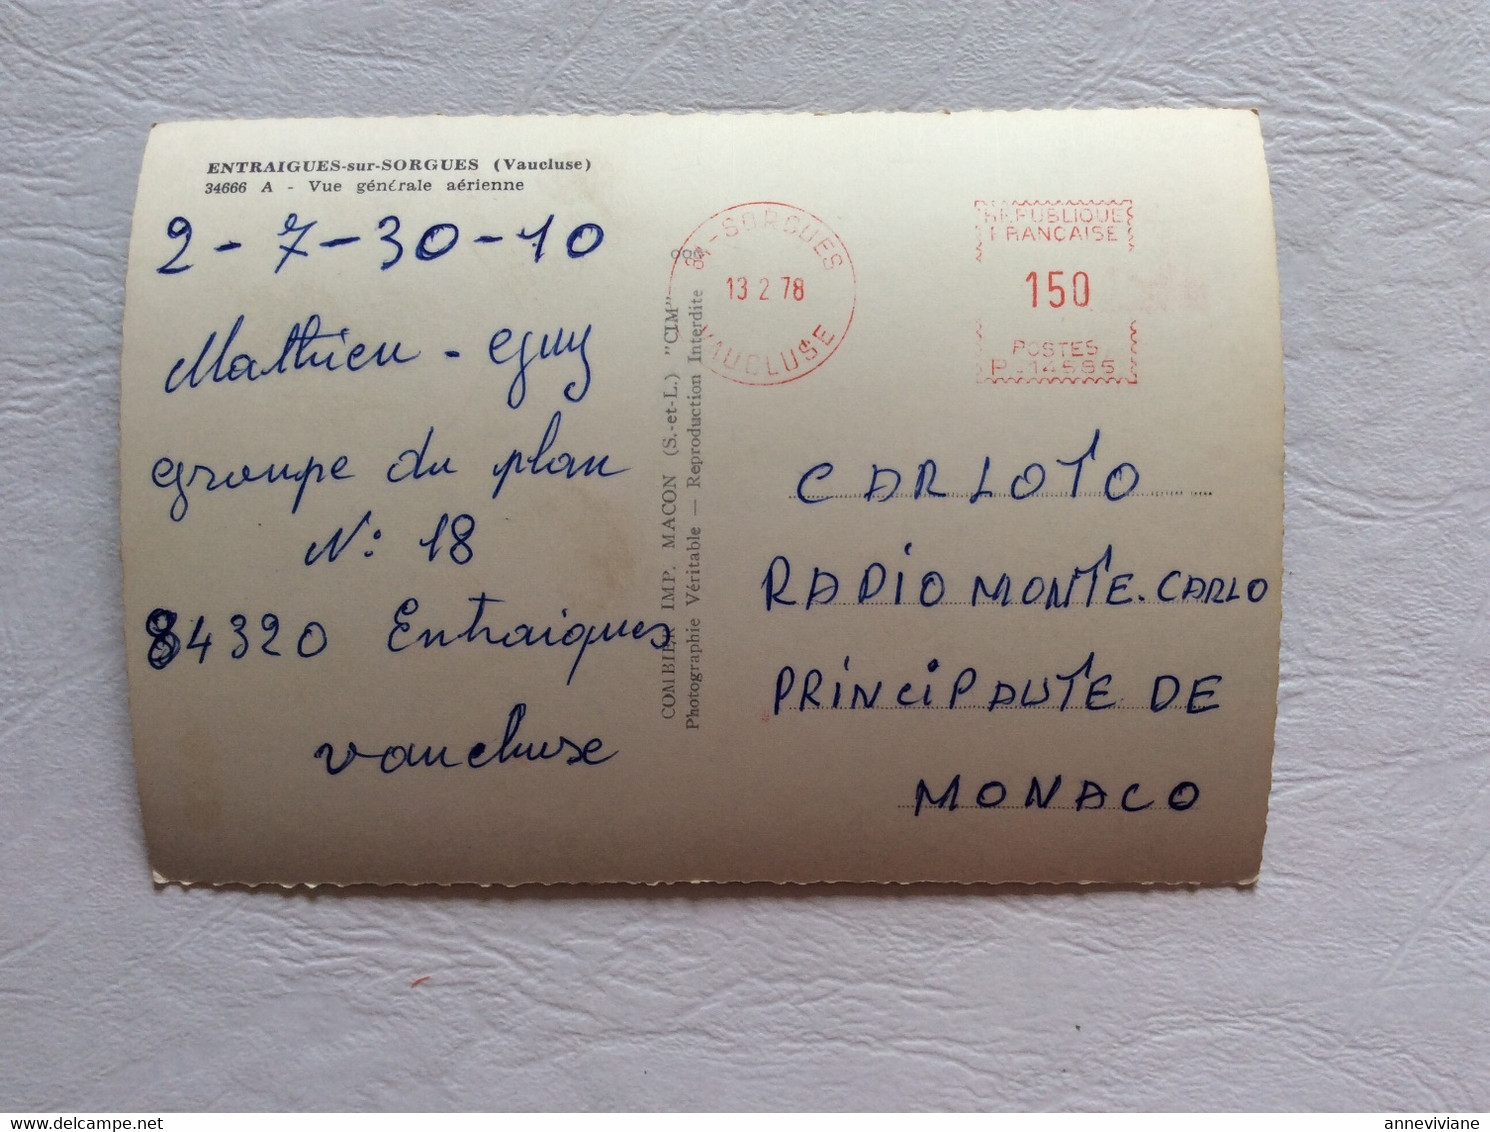 ENTRAIGUES-sur-SORGUES (Vaucluse)
34666 A - Vue générale aérienne
2-7-30-10
Mathieu - Guy
groupe du plan
N: 18
84320 Entraigues
Vaucluse
COMBIER IMP. MACON (S.-et-L.) "CIM"
Photographie Véritable — Reproduction Interdite
84-SORGUES
13 2 78
VAUCLUSE
REPUBLIQUE
FRANÇAISE
150
POSTES
P.14585
CARLOTO
RADIO MONTE-CARLO
PRINCIPAUTE DE
MONACO
delcampe.net
anneviviane